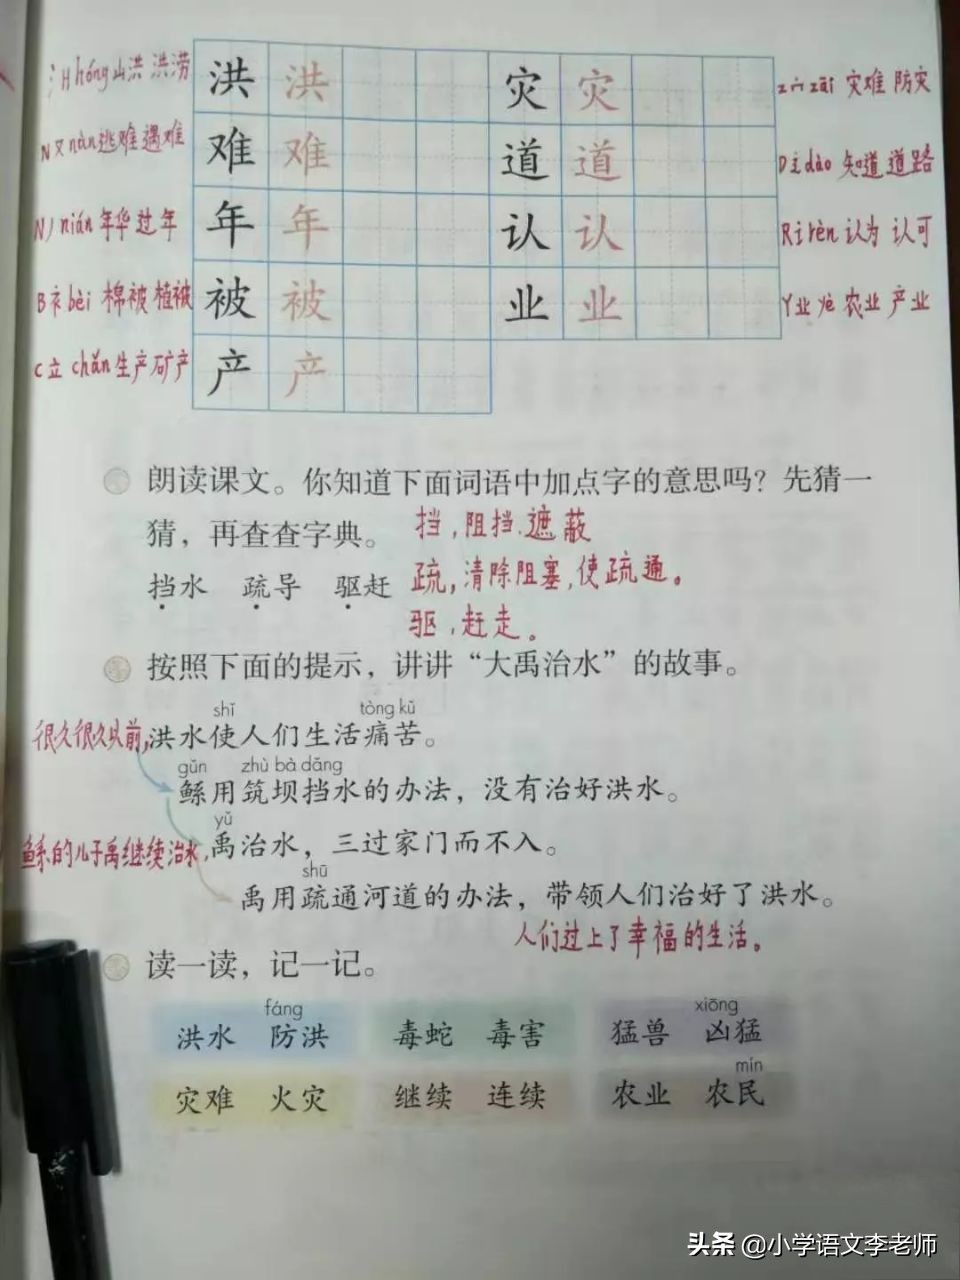 氵H hóng 山洪 洪涝 洪 洪 灾 灾 zāi 灾难 防灾
N 又 nàn 逃难 遇难 难 难 道 道 D辶 dào 知道 道路
N丿 nián 年华 过年 年 年 认 认 R讠 rèn 认为 认可
B衤 bèi 棉被 植被 被 被 业 业 Y业 yè 农业 产业
C立 chǎn 生产 矿产 产 产
朗读课文。你知道下面词语中加点字的意思吗？先猜一
猜，再查查字典。
挡，阻挡、遮蔽
挡水 疏导 驱赶
疏，清除阻塞，使疏通。
驱，赶走。
按照下面的提示，讲讲“大禹治水”的故事。
shǐ tòng kǔ
很久很久以前，洪水使人们生活痛苦。
gǔn zhù bà dǎng
鲧用筑坝挡水的办法，没有治好洪水。
yǔ
鲧的儿子禹继续治水，禹治水，三过家门而不入。
shū
禹用疏通河道的办法，带领人们治好了洪水。
人们过上了幸福的生活。
读一读，记一记。
fáng xiōng
洪水 防洪 毒蛇 毒害 猛兽 凶猛
mín
灾难 火灾 继续 连续 农业 农民
头条 @小学语文李老师